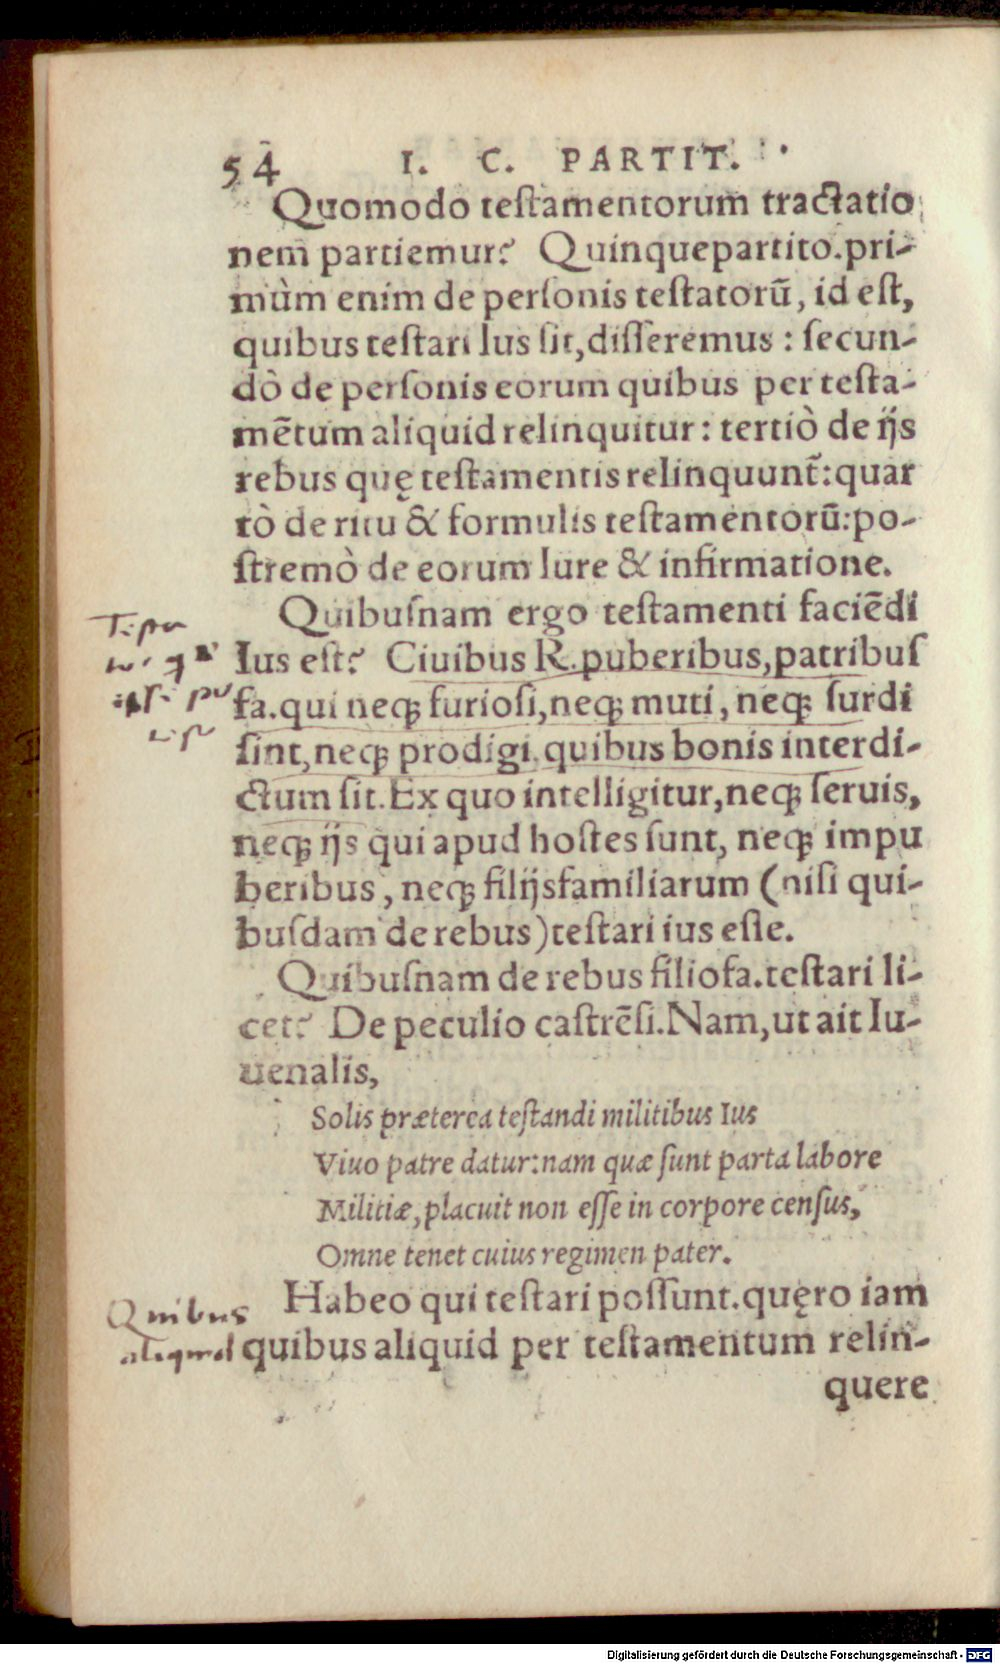 54 I. C. PARTIT.
Quomodo teſtamentorum tractatio
nem partiemur? Quinquepartito. pri-
mùm enim de perſonis teſtatorū, id eſt,
quibus teſtari Ius ſit, diſſeremus : ſecun-
dò de perſonis eorum quibus per teſta-
mētum aliquid relinquitur: tertiò de ijs
rebus quę teſtamentis relinquunt̃: quar
tò de ritu & formulis teſtamentorū: po-
ſtremò de eorum Iure & infirmatione.
Quibuſnam ergo teſtamenti faciēdi
Ius eſt? Ciuibus R. puberibus, patribuſ
fa. qui neqꝫ furioſi, neqꝫ muti, neqꝫ ſurdi
ſint, neqꝫ prodigi, quibus bonis interdi-
ctum ſit. Ex quo intelligitur, neqꝫ ſeruis,
neqꝫ ijs qui apud hoſtes ſunt, neqꝫ impu
beribus, neqꝫ filijsfamiliarum (niſi qui-
buſdam de rebus) teſtari ius eſſe.
Quibuſnam de rebus filiofa. teſtari li-
cet? De peculio caſtrēſi. Nam, ut ait Iu-
uenalis,
Solis præterea teſtandi militibus Ius
Viuo patre datur: nam quæ ſunt parta labore
Militiæ, placuit non eſſe in corpore cenſus,
Omne tenet cuius regimen pater.
Quibus
aliquid
Habeo qui teſtari poſſunt. quęro iam
quibus aliquid per teſtamentum relin-
quere
Digitalisierung gefördert durch die Deutsche Forschungsgemeinschaft - DFG